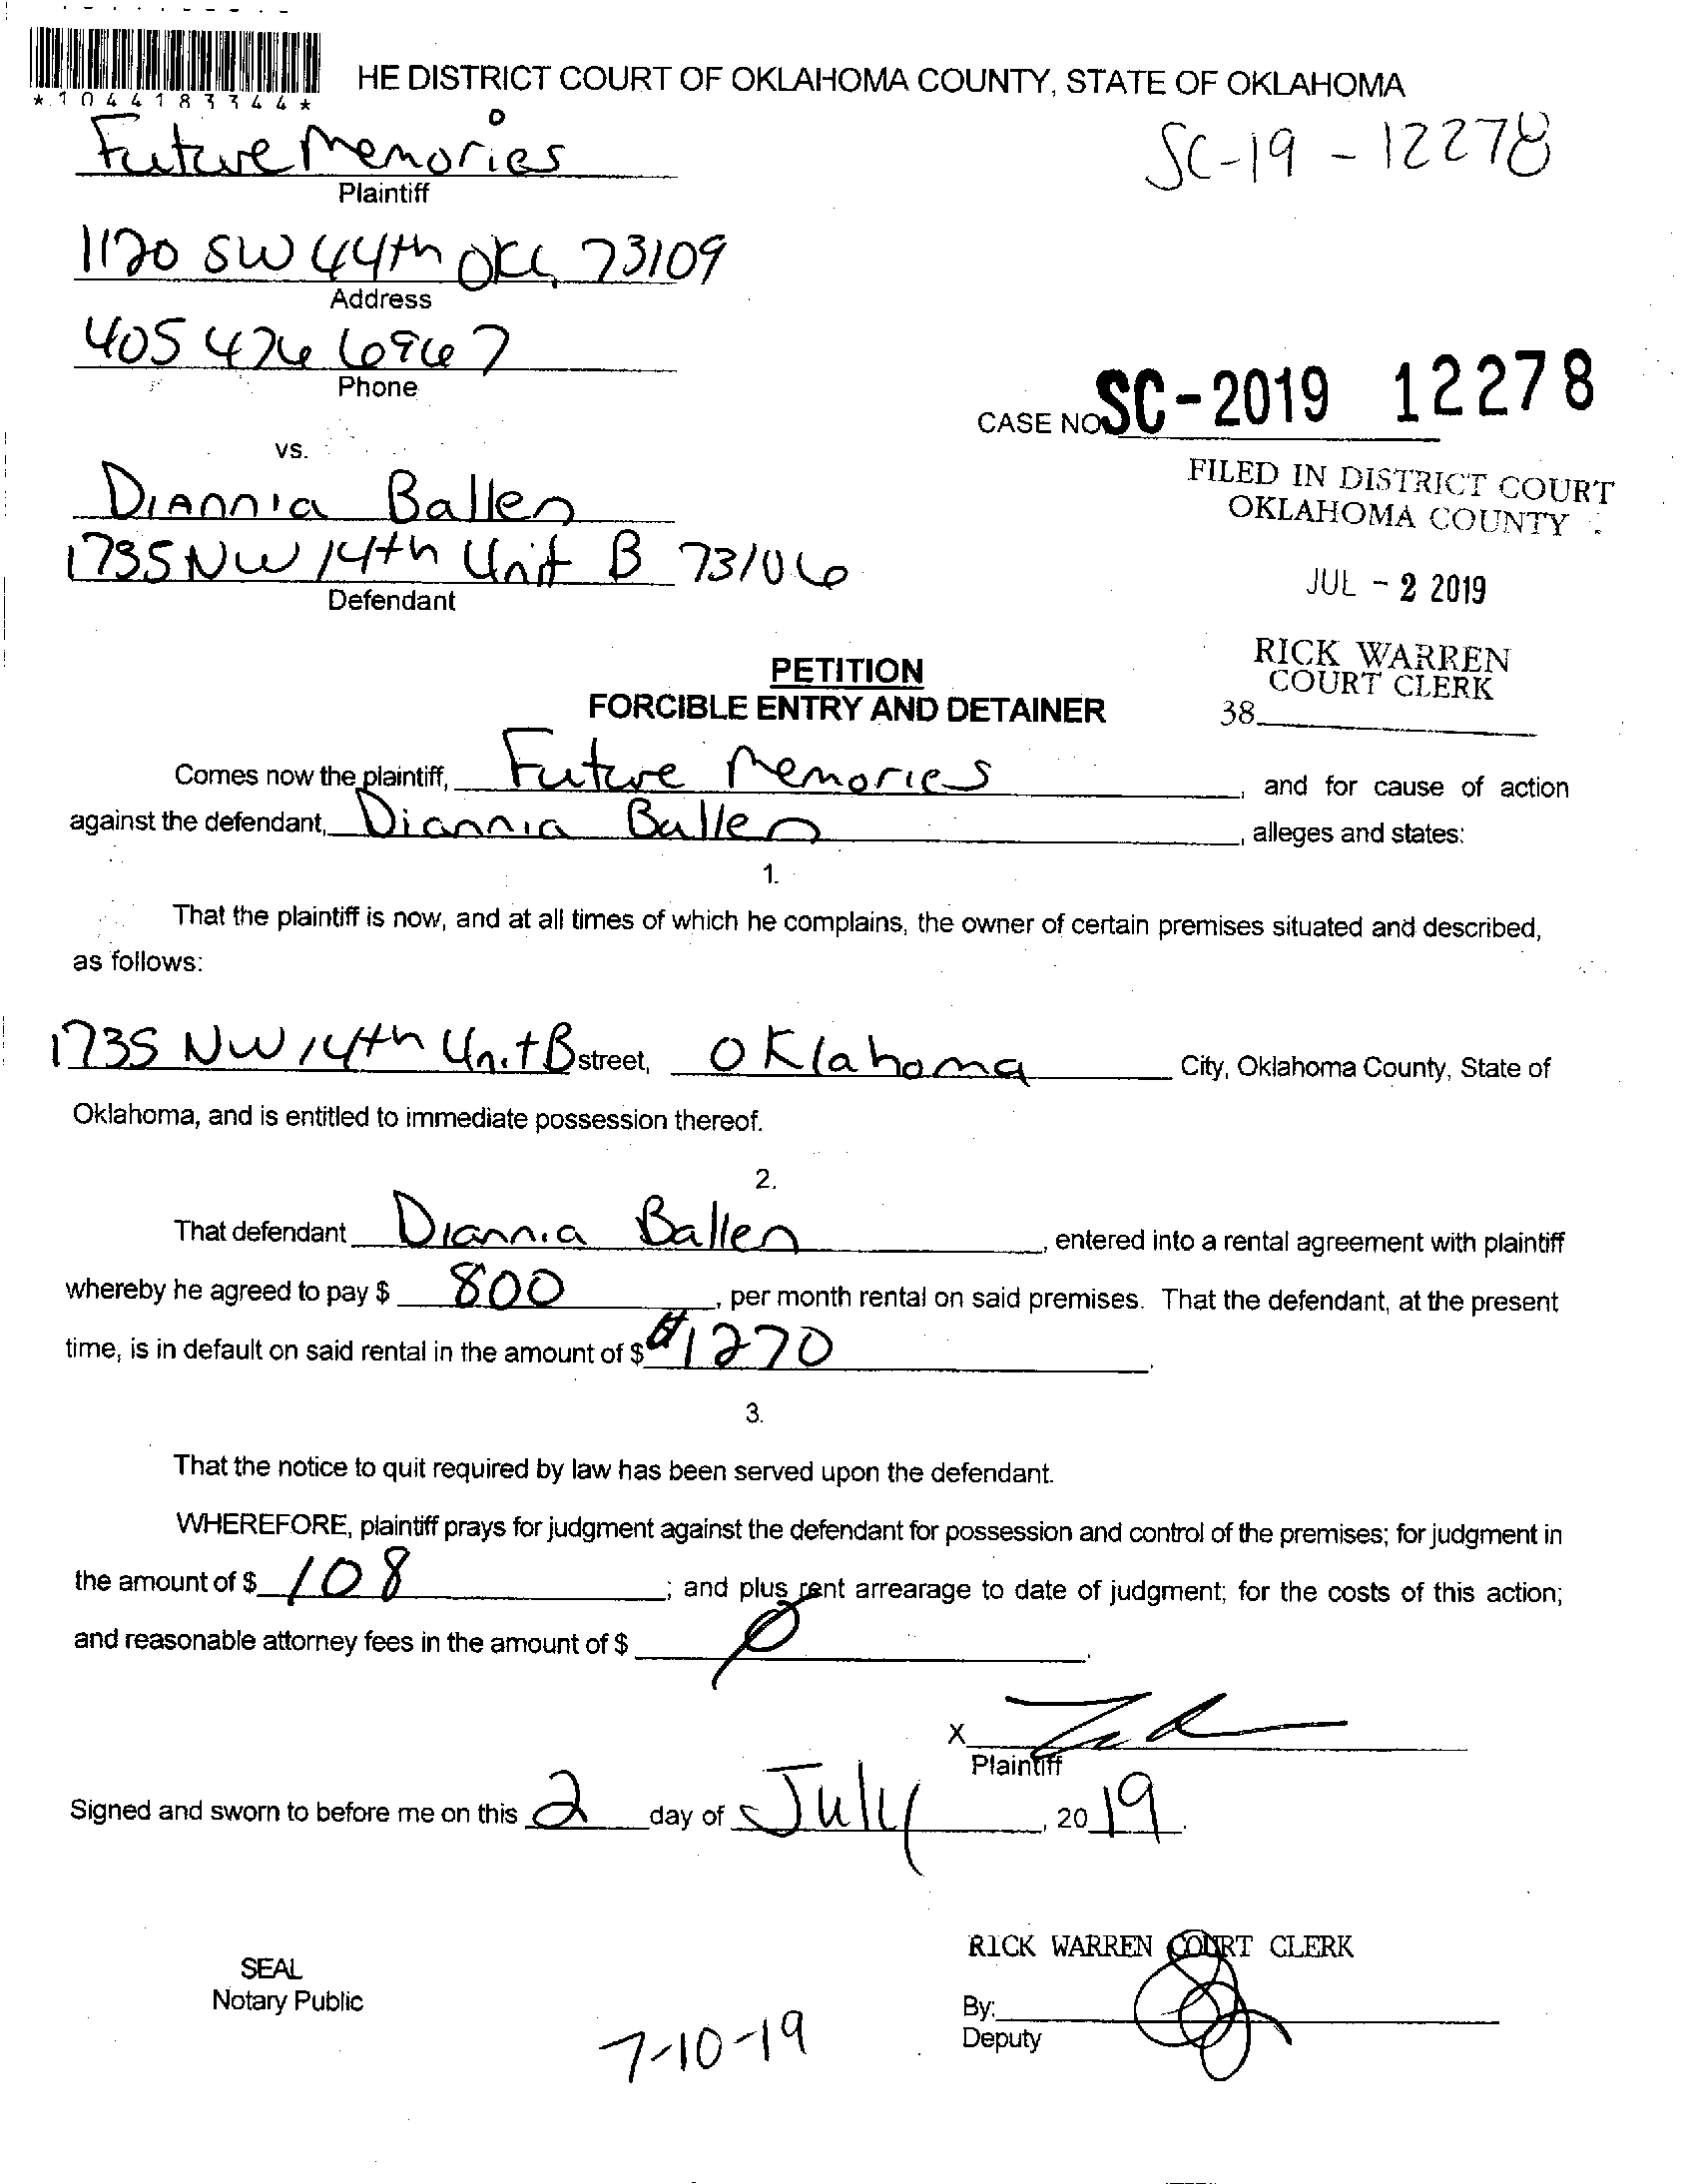 *1044183344*
HE DISTRICT COURT OF OKLAHOMA COUNTY, STATE OF OKLAHOMA
Future Memories
Plaintiff
SC-19-12278
1120 SW 44th OKC, 73109
Address
405 476 6967
Phone
CASE NO SC-2019 12278
vs.
FILED IN DISTRICT COURT
OKLAHOMA COUNTY
Diannia Ballen
1735 NW 14th Unit B 73106
Defendant
JUL - 2 2019
RICK WARREN
COURT CLERK
38
PETITION
FORCIBLE ENTRY AND DETAINER
Comes now the plaintiff, Future Memories, and for cause of action
against the defendant, Diannia Ballen, alleges and states:
1.
That the plaintiff is now, and at all times of which he complains, the owner of certain premises situated and described,
as follows:
1735 NW 14th Unit B street, Oklahoma City, Oklahoma County, State of
Oklahoma, and is entitled to immediate possession thereof.
2.
That defendant Diannia Ballen, entered into a rental agreement with plaintiff
whereby he agreed to pay $ 800, per month rental on said premises. That the defendant, at the present
time, is in default on said rental in the amount of $ $1270.
3.
That the notice to quit required by law has been served upon the defendant.
WHEREFORE, plaintiff prays for judgment against the defendant for possession and control of the premises; for judgment in
the amount of $ 108; and plus rent arrearage to date of judgment; for the costs of this action;
and reasonable attorney fees in the amount of $ Ø.
X
Plaintiff
Signed and sworn to before me on this 2 day of July, 2019.
RICK WARREN COURT CLERK
SEAL
Notary Public
By:
Deputy
7-10-19